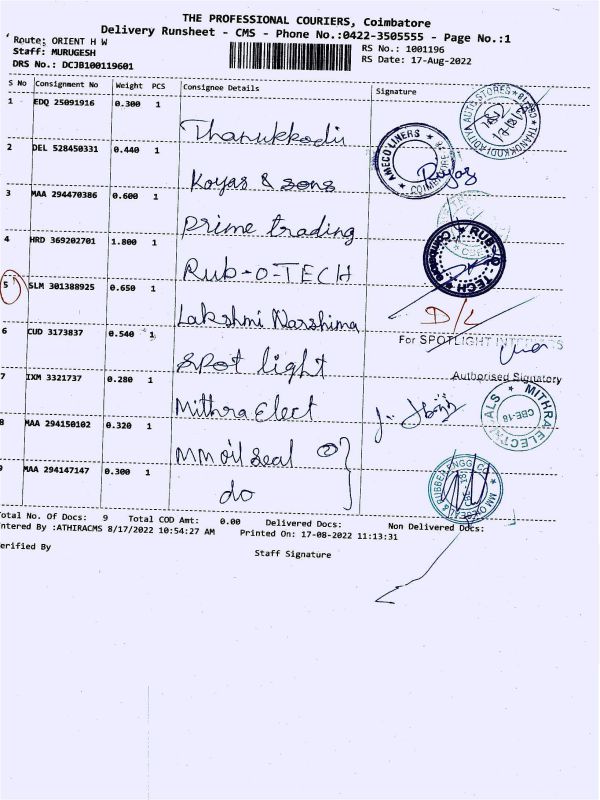 THE PROFESSIONAL COURIERS, Coimbatore
Delivery Runsheet - CMS - Phone No.:0422-3505555 - Page No.:1
Route: ORIENT H W
RS No.: 1001196
Staff: MURUGESH
RS Date: 17-Aug-2022
DRS No.: DCJB100119601
S No Consignment No Weight PCS Consignee Details Signature
1 EDQ 25091916 0.300 1 Thanukkodi
AUTO STORES * CBE-18 * THANUKKODI
17/8/22
2 DEL 528450331 0.440 1 Koyas & sons
AMECO LINERS * COIMBATORE
Koyas
3 MAA 294470386 0.600 1 Prime trading
4 HRD 369202701 1.800 1 RUB-O-TECH
* RUB-O-TECH *
5 SLM 301388925 0.650 1 Lakshmi Narshima
D/L
6 CUD 3173837 0.540 1 Spot light
For SPOTLIGHT
Authorised Signatory
7 IXM 3321737 0.280 1 Mithra Elect
* MITHRA ELECTRICALS
CBE-18
8 MAA 294150102 0.320 1 MM oil seal ②
9 MAA 294147147 0.300 1 do
* MM OIL SEAL & RUBBER ENGG. CO.
Total No. Of Docs: 9 Total COD Amt: 0.00 Delivered Docs: Non Delivered Docs:
ntered By :ATHIRACMS 8/17/2022 10:54:27 AM Printed On: 17-08-2022 11:13:31
erified By
Staff Signature